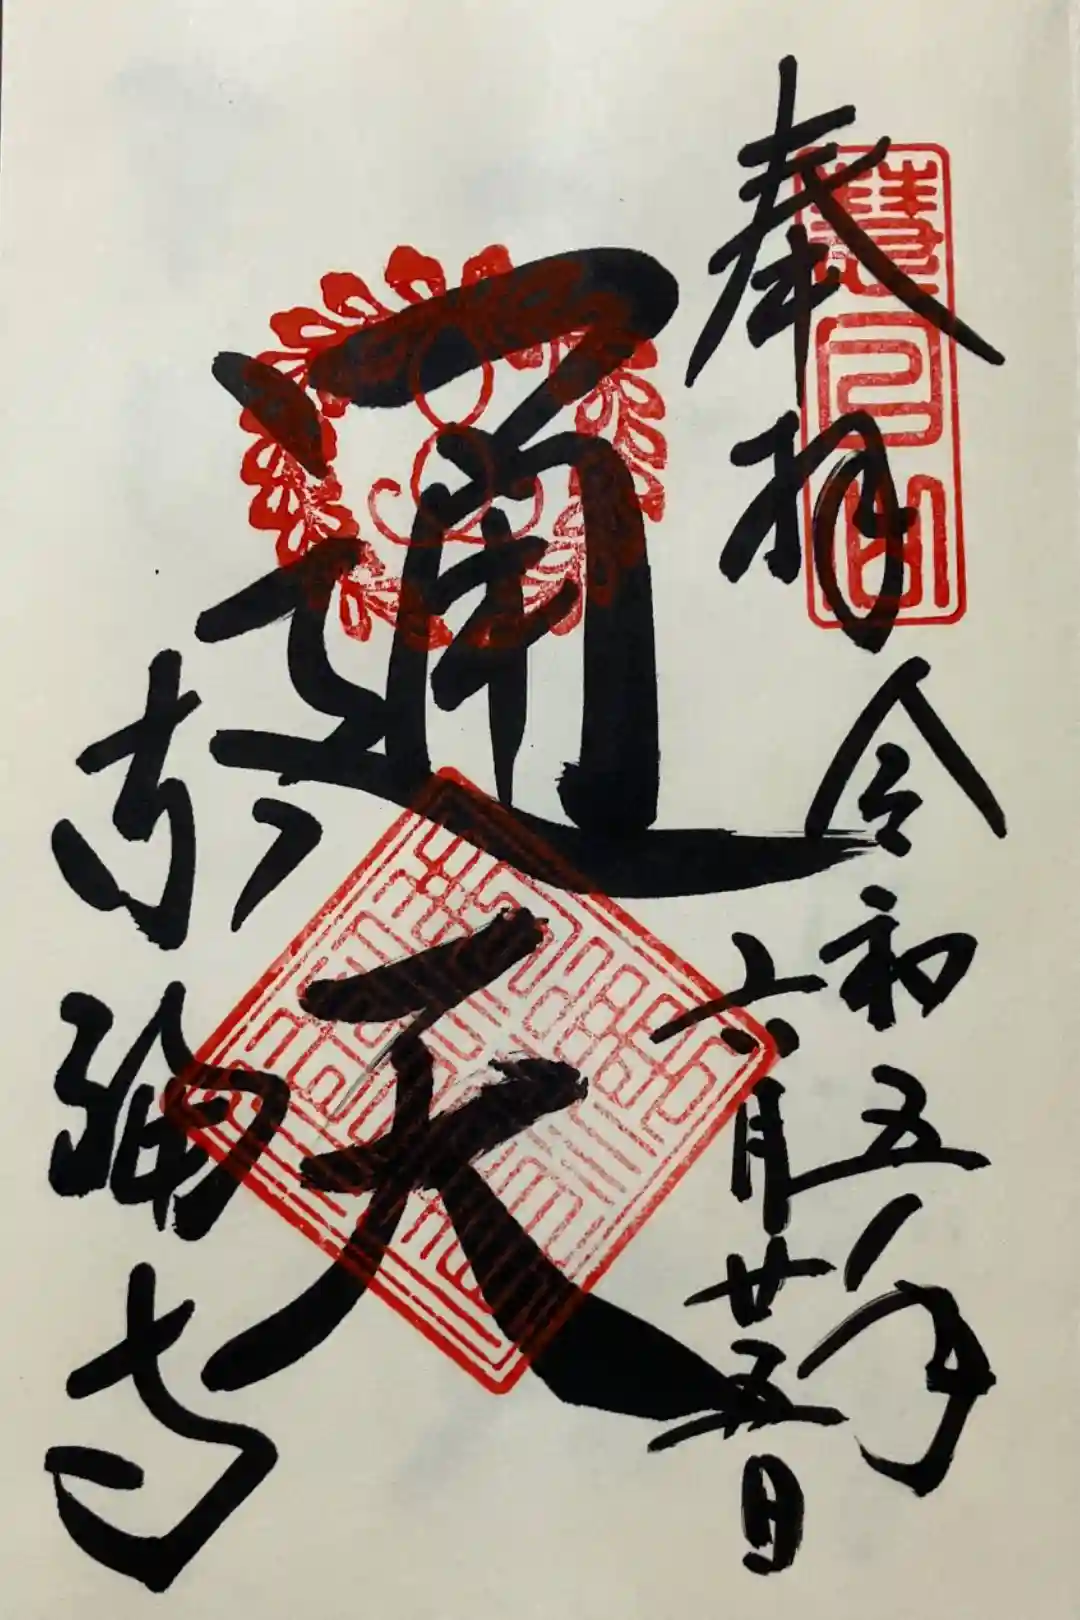 慧日山
奉拝
令和五年
六月廿五日
通天
東福寺